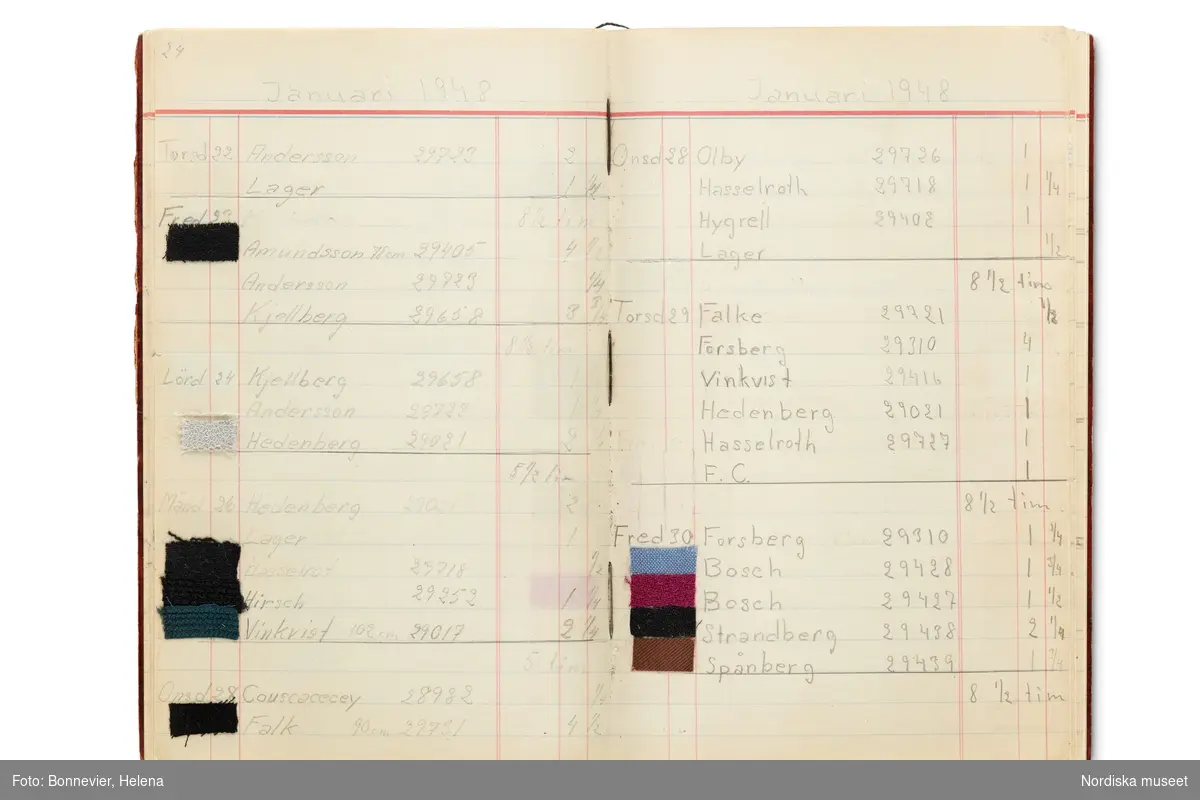 24
Januari 1948
Torsd 22 Andersson 29723 2
Lager 1 1/4
Fred 23 8 1/2 tim
Amundsson 70cm 29405 4
Andersson 29723 1/4
Kjellberg 29658 3
8 1/2 tim
Lörd 24 Kjellberg 29658 1
Andersson 29723 1
Hedenberg 29021 2
5 1/2 tim
Månd 26 Hedenberg 2
Lager 1
Hasselrot 29718 1/2
Hirsch 29252 1 1/4
Vinkvist 102 cm 29017 2 1/4
5 tim
Onsd 28 Couscacecey 28982
Falk 90cm 29731 4 1/2
Januari 1948
Onsd 28 Olby 29726 1
Hasselroth 29718 1 1/4
Hygrell 29408 1
Lager 1/2
8 1/2 tim
Torsd 29 Falke 29721 1/2
Forsberg 29310 4
Vinkvist 29416 1
Hedenberg 29021 1
Hasselroth 29727 1
F. C. 1
8 1/2 tim.
Fred 30 Forsberg 29310 1 3/4
Bosch 29428 1 3/4
Bosch 29427 1 1/2
Strandberg 29438 2 1/4
Spånberg 29439 1
8 1/2 tim
Foto: Bonnevier, Helena
Nordiska museet